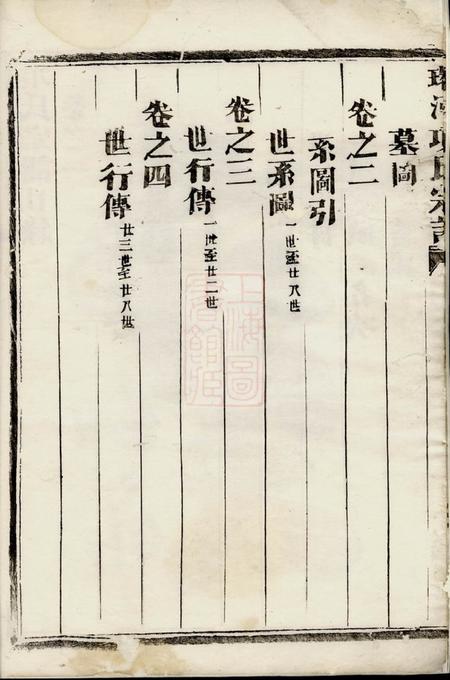 墓圖
卷之二
系圖引
世系圖 一世至廿八世
卷之三
世行傳 一世至廿二世
卷之四
世行傳 廿三世至廿八世
上海圖書館藏